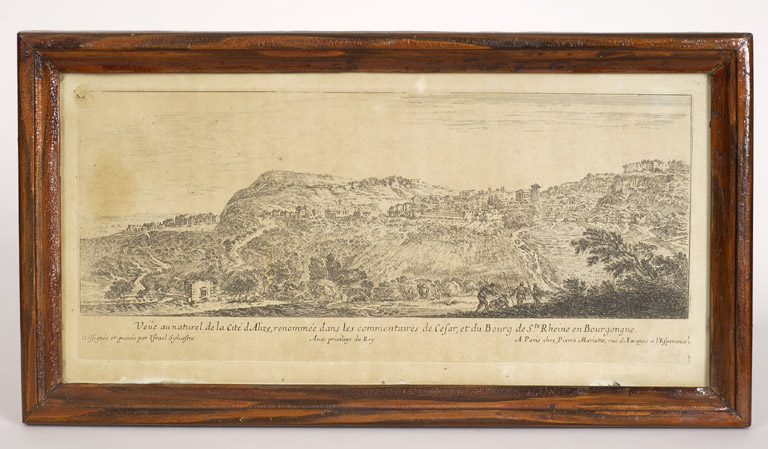 Veüe au naturel de la Cité d'Alize, renommée dans les commentaires de Cesar, et du Bourg de Ste. Rheine en Bourgongne.
Dessignée et gravée par Israel Sylvestre Avec privilege du Roy A Paris chez Pierre Mariette, rue S. Iacques a l'Esperance